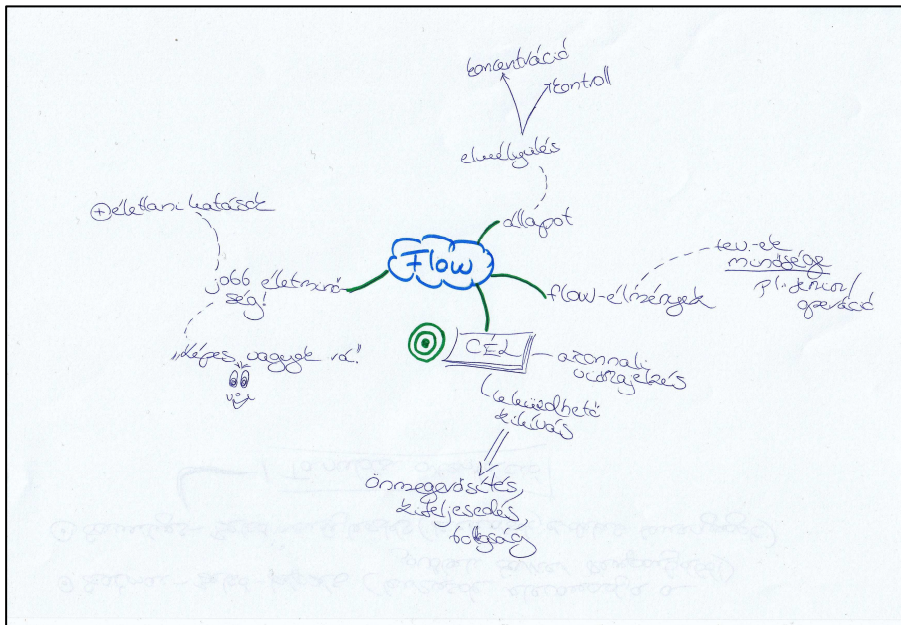 koncentráció
kontroll
elmélyülés
állapot
⊕ élettani hatások
Flow
jobb életminő-
ség!
„Képes vagyok rá!"
flow-élmények
tev.-ek
minősége
pl. tenisz/
operáció
CÉL
azonnali
visszajelzés
leküzdhető
kihívás
önmegerősítés,
kiteljesedés,
boldogság